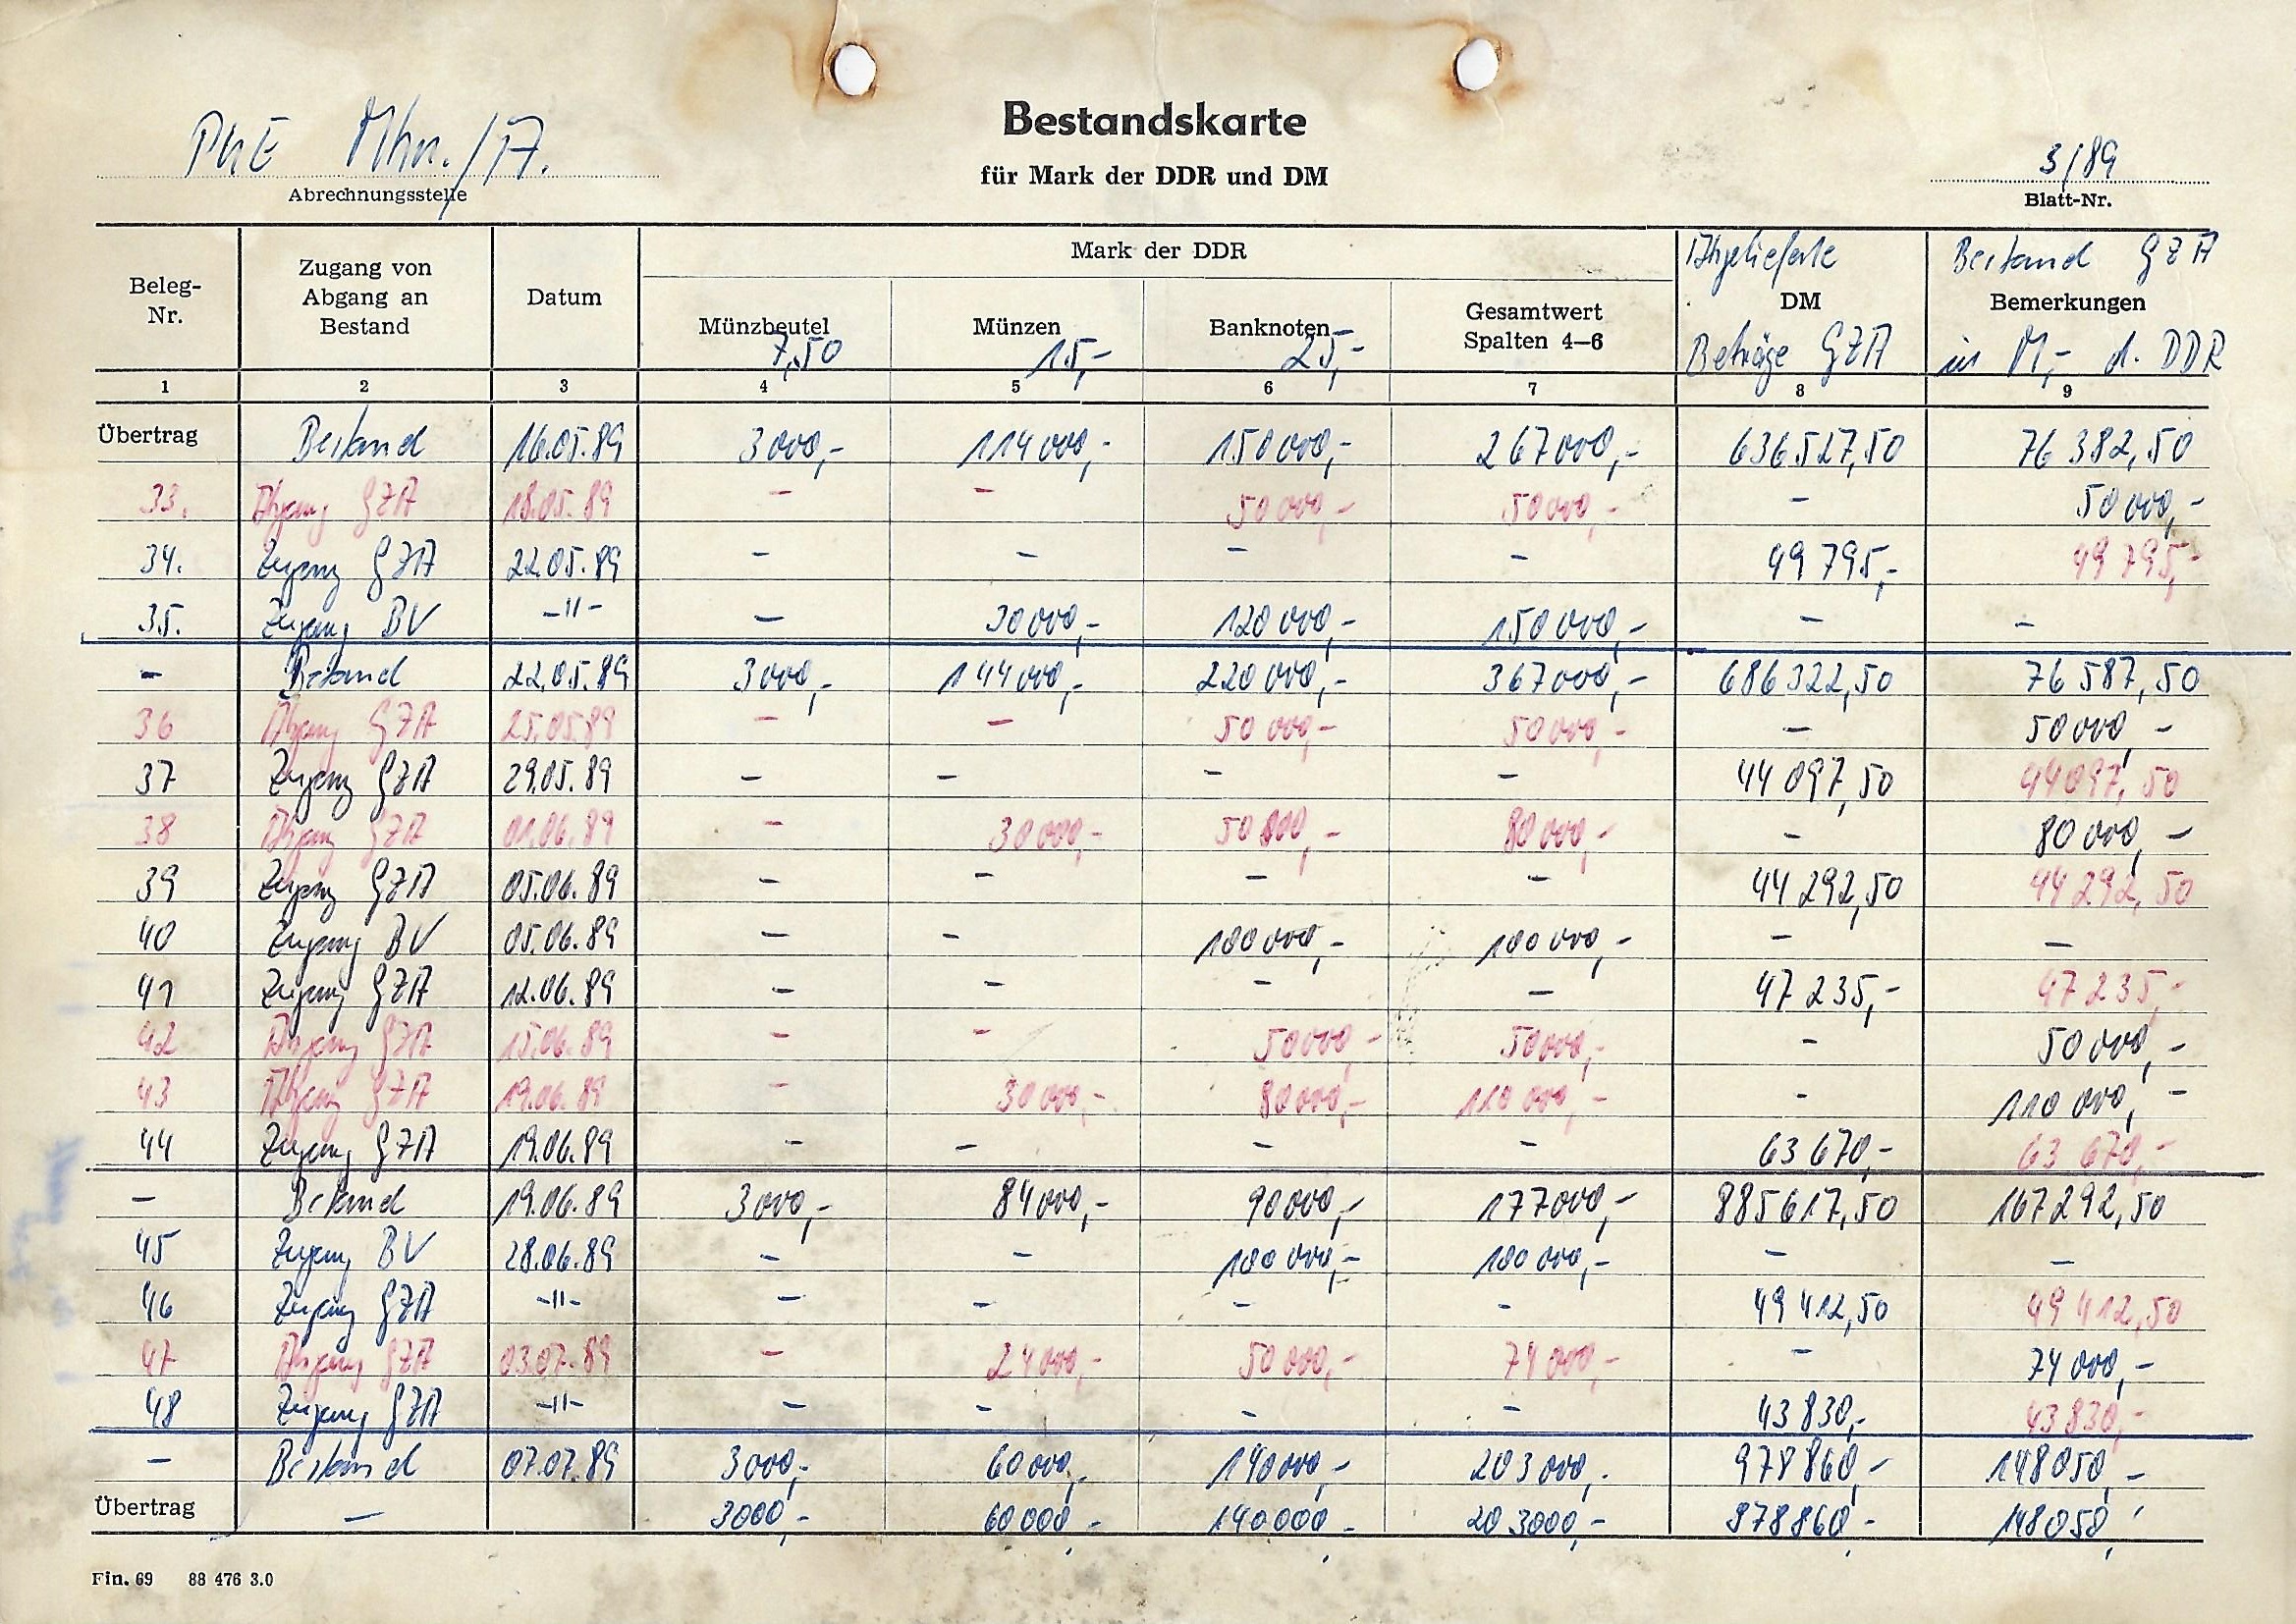 Bestandskarte
für Mark der DDR und DM
PKE Mhn./A.
Abrechnungsstelle
3/89
Blatt-Nr.
Beleg-Nr. Zugang von Abgang an Bestand Datum Mark der DDR Abgelieferte DM Beträge GZA Bestand GZA Bemerkungen in M,- d. DDR
Münzbeutel 7,50 Münzen 15,- Banknoten 25,- Gesamtwert Spalten 4–6
1 2 3 4 5 6 7 8 9
Übertrag Bestand 16.05.89 3000,- 114000,- 150000,- 267000,- 636527,50 76382,50
33. Abgang GZA 18.05.89 - - 50000,- 50000,- - 50000,-
34. Zugang GZA 22.05.89 - - - - 49795,- 49795,-
35. Zugang BV -"- - 30000,- 120000,- 150000,- - -
- Bestand 22.05.89 3000,- 144000,- 220000,- 367000,- 686322,50 76587,50
36 Abgang GZA 25.05.89 - - 50000,- 50000,- - 50000,-
37 Zugang GZA 29.05.89 - - - - 44097,50 44097,50
38 Abgang GZA 01.06.89 - 30000,- 50000,- 80000,- - 80000,-
39 Zugang GZA 05.06.89 - - - - 44292,50 44292,50
40 Zugang BV 05.06.89 - - 100000,- 100000,- - -
41 Zugang GZA 12.06.89 - - - - 47235,- 47235,-
42 Abgang GZA 15.06.89 - - 50000,- 50000,- - 50000,-
43 Abgang GZA 19.06.89 - 30000,- 80000,- 110000,- - 110000,-
44 Zugang GZA 19.06.89 - - - - 63670,- 63670,-
- Bestand 19.06.89 3000,- 84000,- 90000,- 177000,- 885617,50 167292,50
45 Zugang BV 28.06.89 - - 100000,- 100000,- - -
46 Zugang GZA -"- - - - - 49412,50 49412,50
47 Abgang GZA 03.07.89 - 24000,- 50000,- 74000,- - 74000,-
48 Zugang GZA -"- - - - - 43830,- 43830,-
- Bestand 07.07.89 3000,- 60000,- 140000,- 203000,- 978860,- 148050,-
Übertrag - 3000,- 60000,- 140000,- 203000,- 978860,- 148050,-
Fin. 69 88 476 3.0